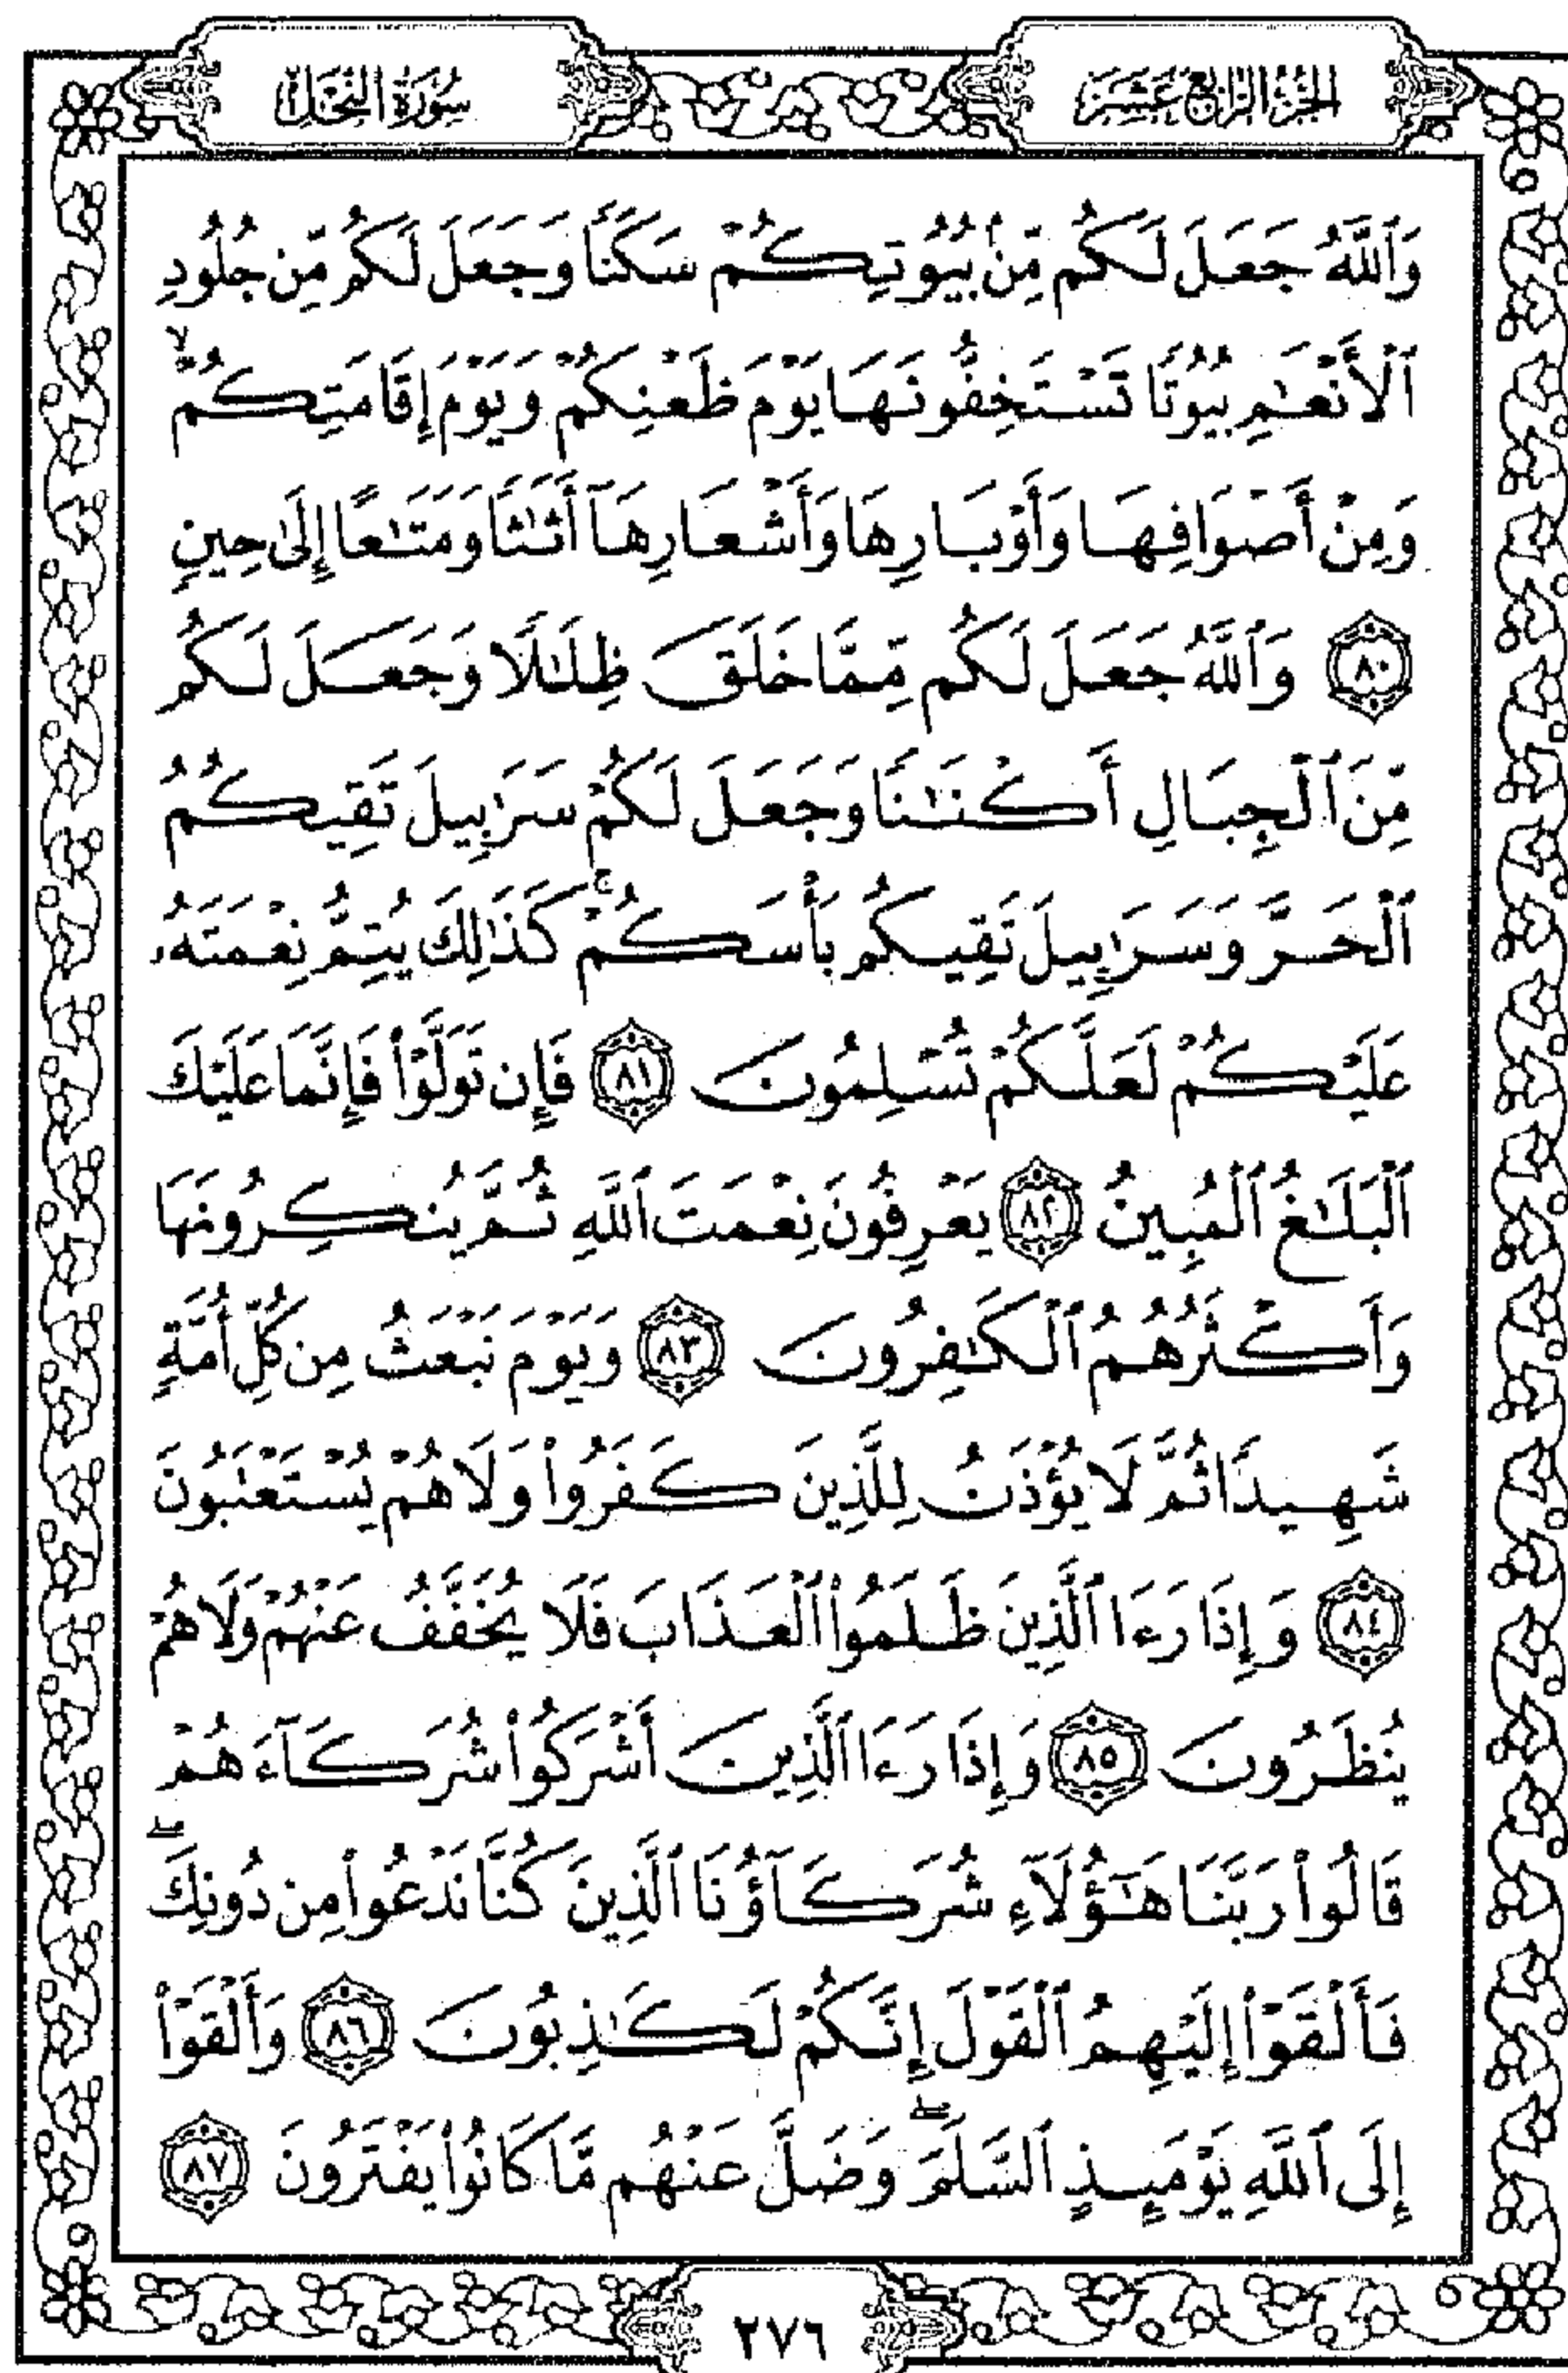 الجزء الرابع عشر
سورة النحل
وَٱللَّهُ جَعَلَ لَكُم مِّنۢ بُيُوتِكُمْ سَكَنًا وَجَعَلَ لَكُم مِّن جُلُودِ
ٱلْأَنْعَٰمِ بُيُوتًا تَسْتَخِفُّونَهَا يَوْمَ ظَعْنِكُمْ وَيَوْمَ إِقَامَتِكُمْ ۙ
وَمِنْ أَصْوَافِهَا وَأَوْبَارِهَا وَأَشْعَارِهَآ أَثَٰثًا وَمَتَٰعًا إِلَىٰ حِينٍ
٨٠ وَٱللَّهُ جَعَلَ لَكُم مِّمَّا خَلَقَ ظِلَٰلًا وَجَعَلَ لَكُم
مِّنَ ٱلْجِبَالِ أَكْنَٰنًا وَجَعَلَ لَكُمْ سَرَٰبِيلَ تَقِيكُمُ
ٱلْحَرَّ وَسَرَٰبِيلَ تَقِيكُم بَأْسَكُمْ ۚ كَذَٰلِكَ يُتِمُّ نِعْمَتَهُۥ
عَلَيْكُمْ لَعَلَّكُمْ تُسْلِمُونَ ٨١ فَإِن تَوَلَّوْا۟ فَإِنَّمَا عَلَيْكَ
ٱلْبَلَٰغُ ٱلْمُبِينُ ٨٢ يَعْرِفُونَ نِعْمَتَ ٱللَّهِ ثُمَّ يُنكِرُونَهَا
وَأَكْثَرُهُمُ ٱلْكَٰفِرُونَ ٨٣ وَيَوْمَ نَبْعَثُ مِن كُلِّ أُمَّةٍ
شَهِيدًا ثُمَّ لَا يُؤْذَنُ لِلَّذِينَ كَفَرُوا۟ وَلَا هُمْ يُسْتَعْتَبُونَ
٨٤ وَإِذَا رَءَا ٱلَّذِينَ ظَلَمُوا۟ ٱلْعَذَابَ فَلَا يُخَفَّفُ عَنْهُمْ وَلَا هُمْ
يُنظَرُونَ ٨٥ وَإِذَا رَءَا ٱلَّذِينَ أَشْرَكُوا۟ شُرَكَآءَهُمْ
قَالُوا۟ رَبَّنَا هَٰٓؤُلَآءِ شُرَكَآؤُنَا ٱلَّذِينَ كُنَّا نَدْعُوا۟ مِن دُونِكَ ۖ
فَأَلْقَوْا۟ إِلَيْهِمُ ٱلْقَوْلَ إِنَّكُمْ لَكَٰذِبُونَ ٨٦ وَأَلْقَوْا۟
إِلَى ٱللَّهِ يَوْمَئِذٍ ٱلسَّلَمَ ۖ وَضَلَّ عَنْهُم مَّا كَانُوا۟ يَفْتَرُونَ ٨٧
٢٧٦